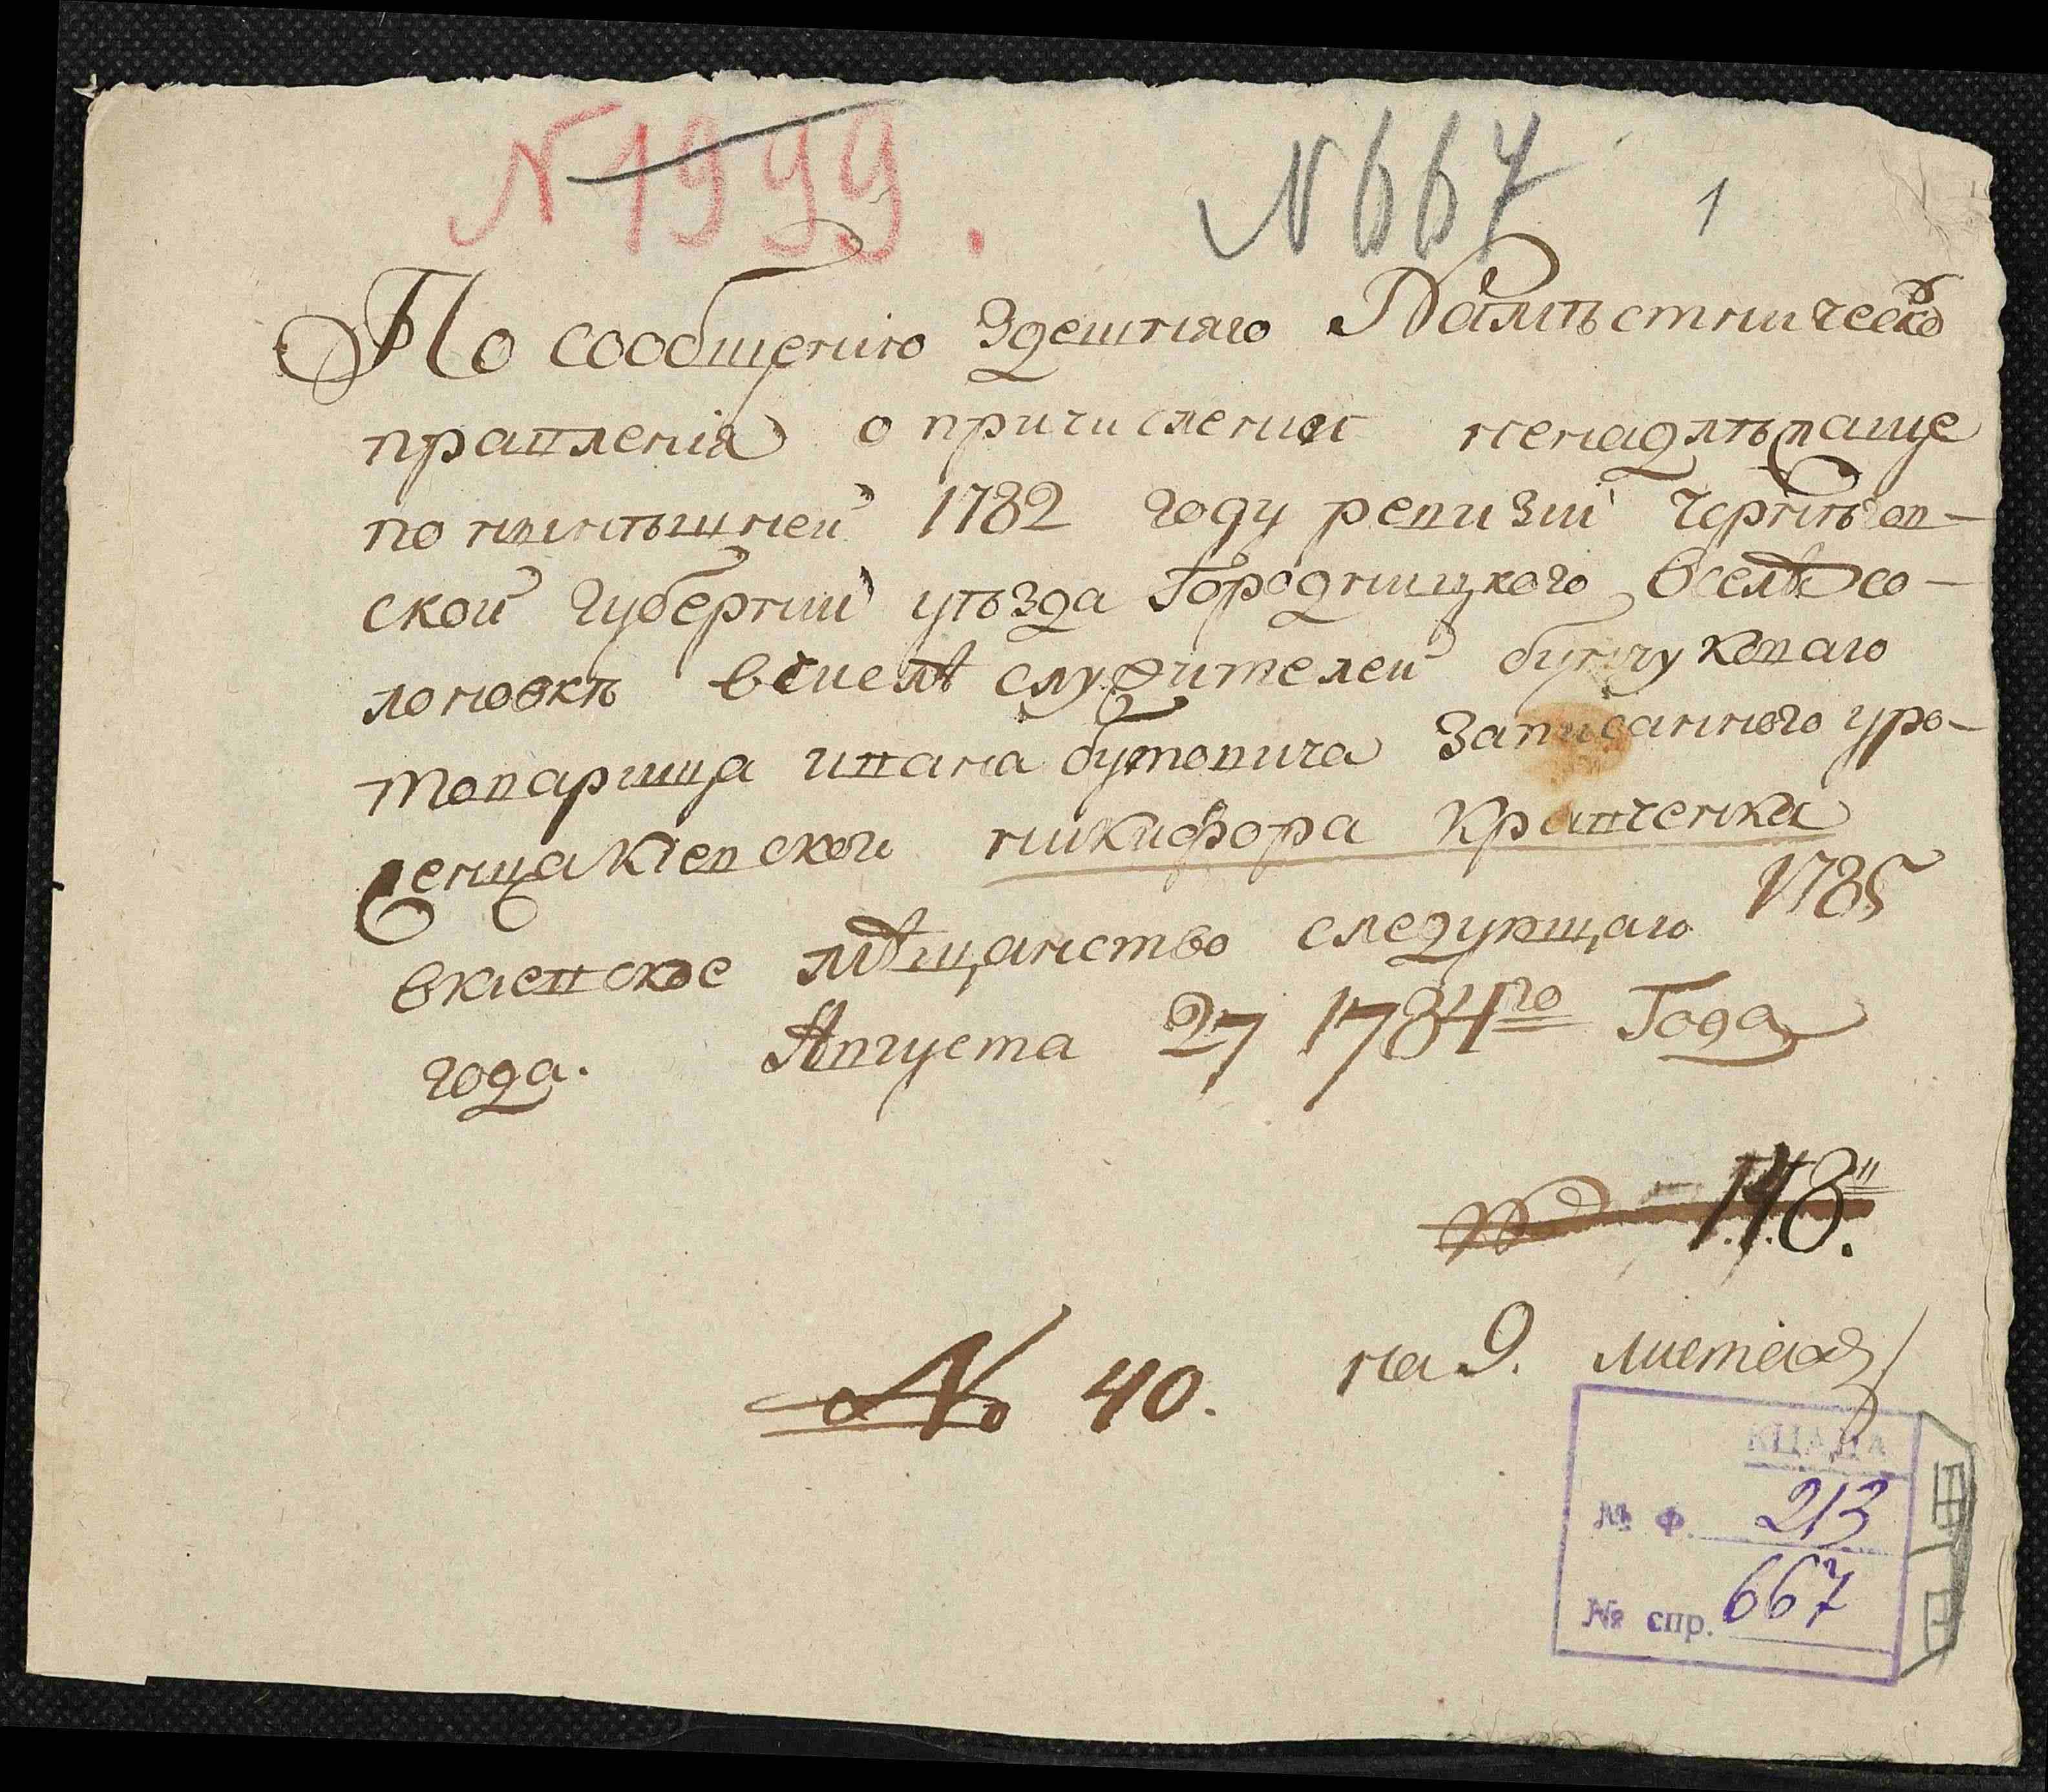 N 1999.
N 667
1
По сообщению Здешняго Намѣстническо
правленія о причислении ненадлѣжаще
по нинѣшней 1782 году ревизіи Чернѣгов-
ской губерніи уѣзда Городницкого Вселѣ со-
лоновкѣ вчислѣ служителей бунчуковаго
товарища ивана бутовича Записанного уро-
женца Кіевской никифора Кравченка
вкіевское мѣщанство следующаго 1785
года. Августа 27 1784го Года
№ 148.
№ 40. на 9. листах
КЦАДА
№ ф. 213
№ спр. 667